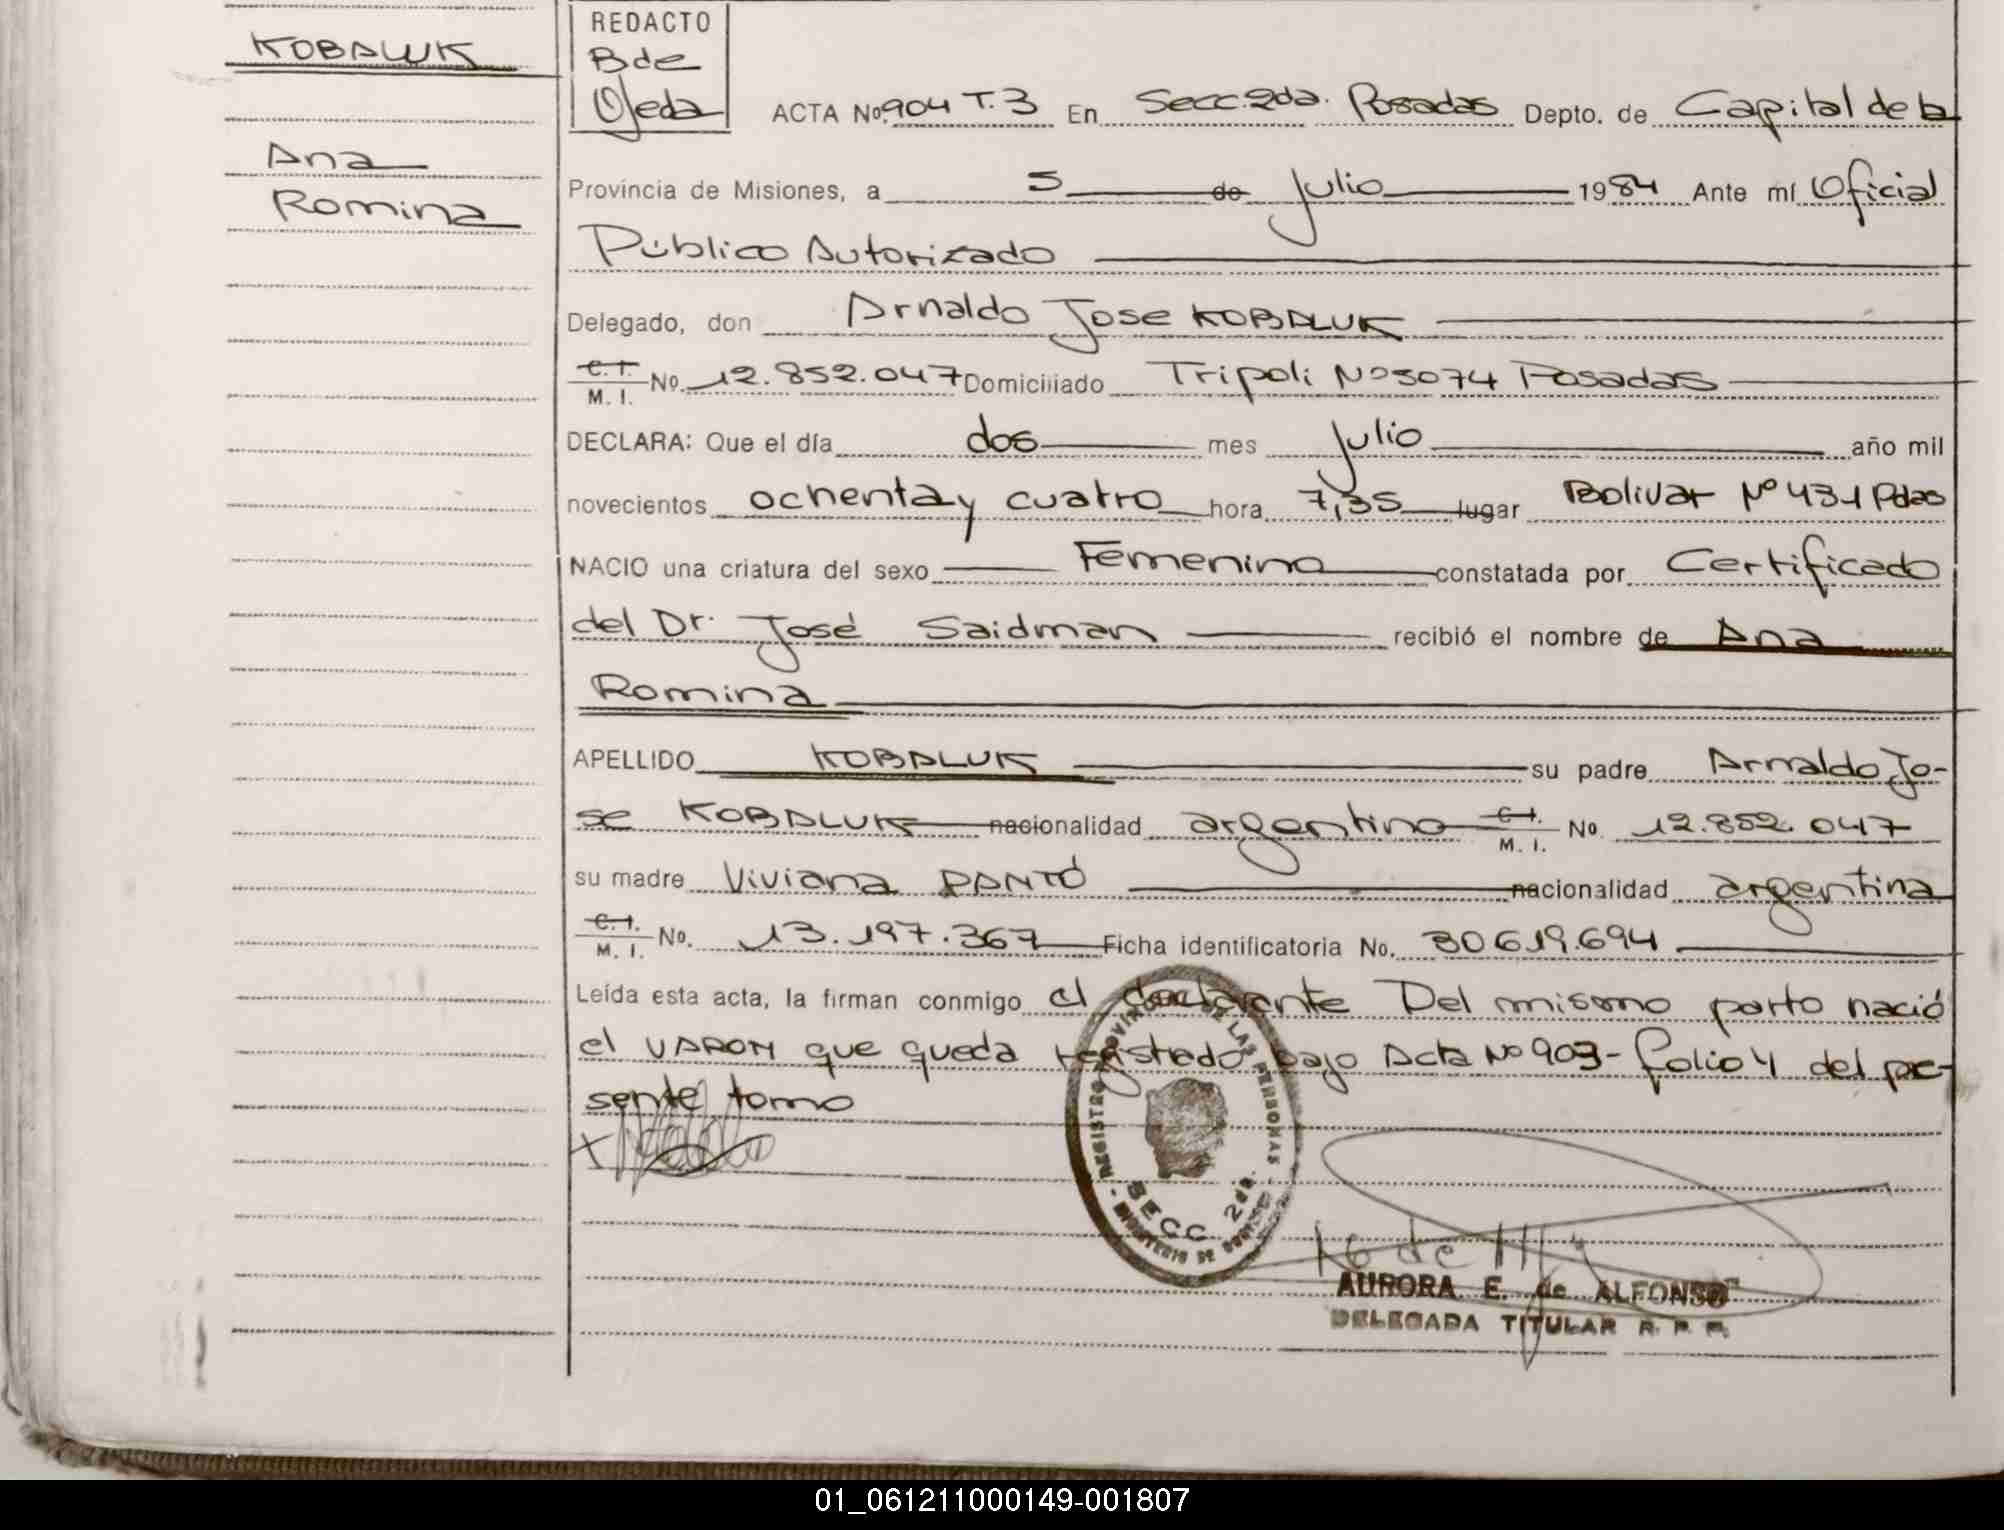 KOBALUK
Ana
Romina
REDACTO
Bde
Ojeda
ACTA No. 904 T. 3 En Secc. 2da. Posadas Depto. de Capital de la
Provincia de Misiones, a 5 de Julio 1984 Ante mí Oficial
Público Autorizado
Delegado, don Arnaldo Jose KOBALUK
C.I.
M. I. No. 12.852.047 Domiciliado Tripoli Nº 5074 Posadas
DECLARA: Que el día dos mes Julio año mil
novecientos ochenta y cuatro hora 7,35 lugar Bolivar Nº 431 Pdas
NACIO una criatura del sexo Femenino constatada por Certificado
del Dr. José Saidman recibió el nombre de Ana
Romina
APELLIDO KOBALUK su padre Arnaldo Jo-
se KOBALUK nacionalidad argentino C.I. M. I. No. 12.852.047
su madre Viviana PANTÓ nacionalidad argentina
C.I.
M. I. No. 13.197.367 Ficha identificatoria No. 30619.694
Leída esta acta, la firman conmigo el declarante Del mismo parto nació
el VARON que queda registrado bajo Acta Nº 903- folio 4 del pre-
sente tomo
REGISTRO PROVINCIAL DE LAS PERSONAS
SECC. 2da.
MINISTERIO DE GOBIERNO
AURORA E. de ALFONSO
DELEGADA TITULAR R. P. P.
01_061211000149-001807